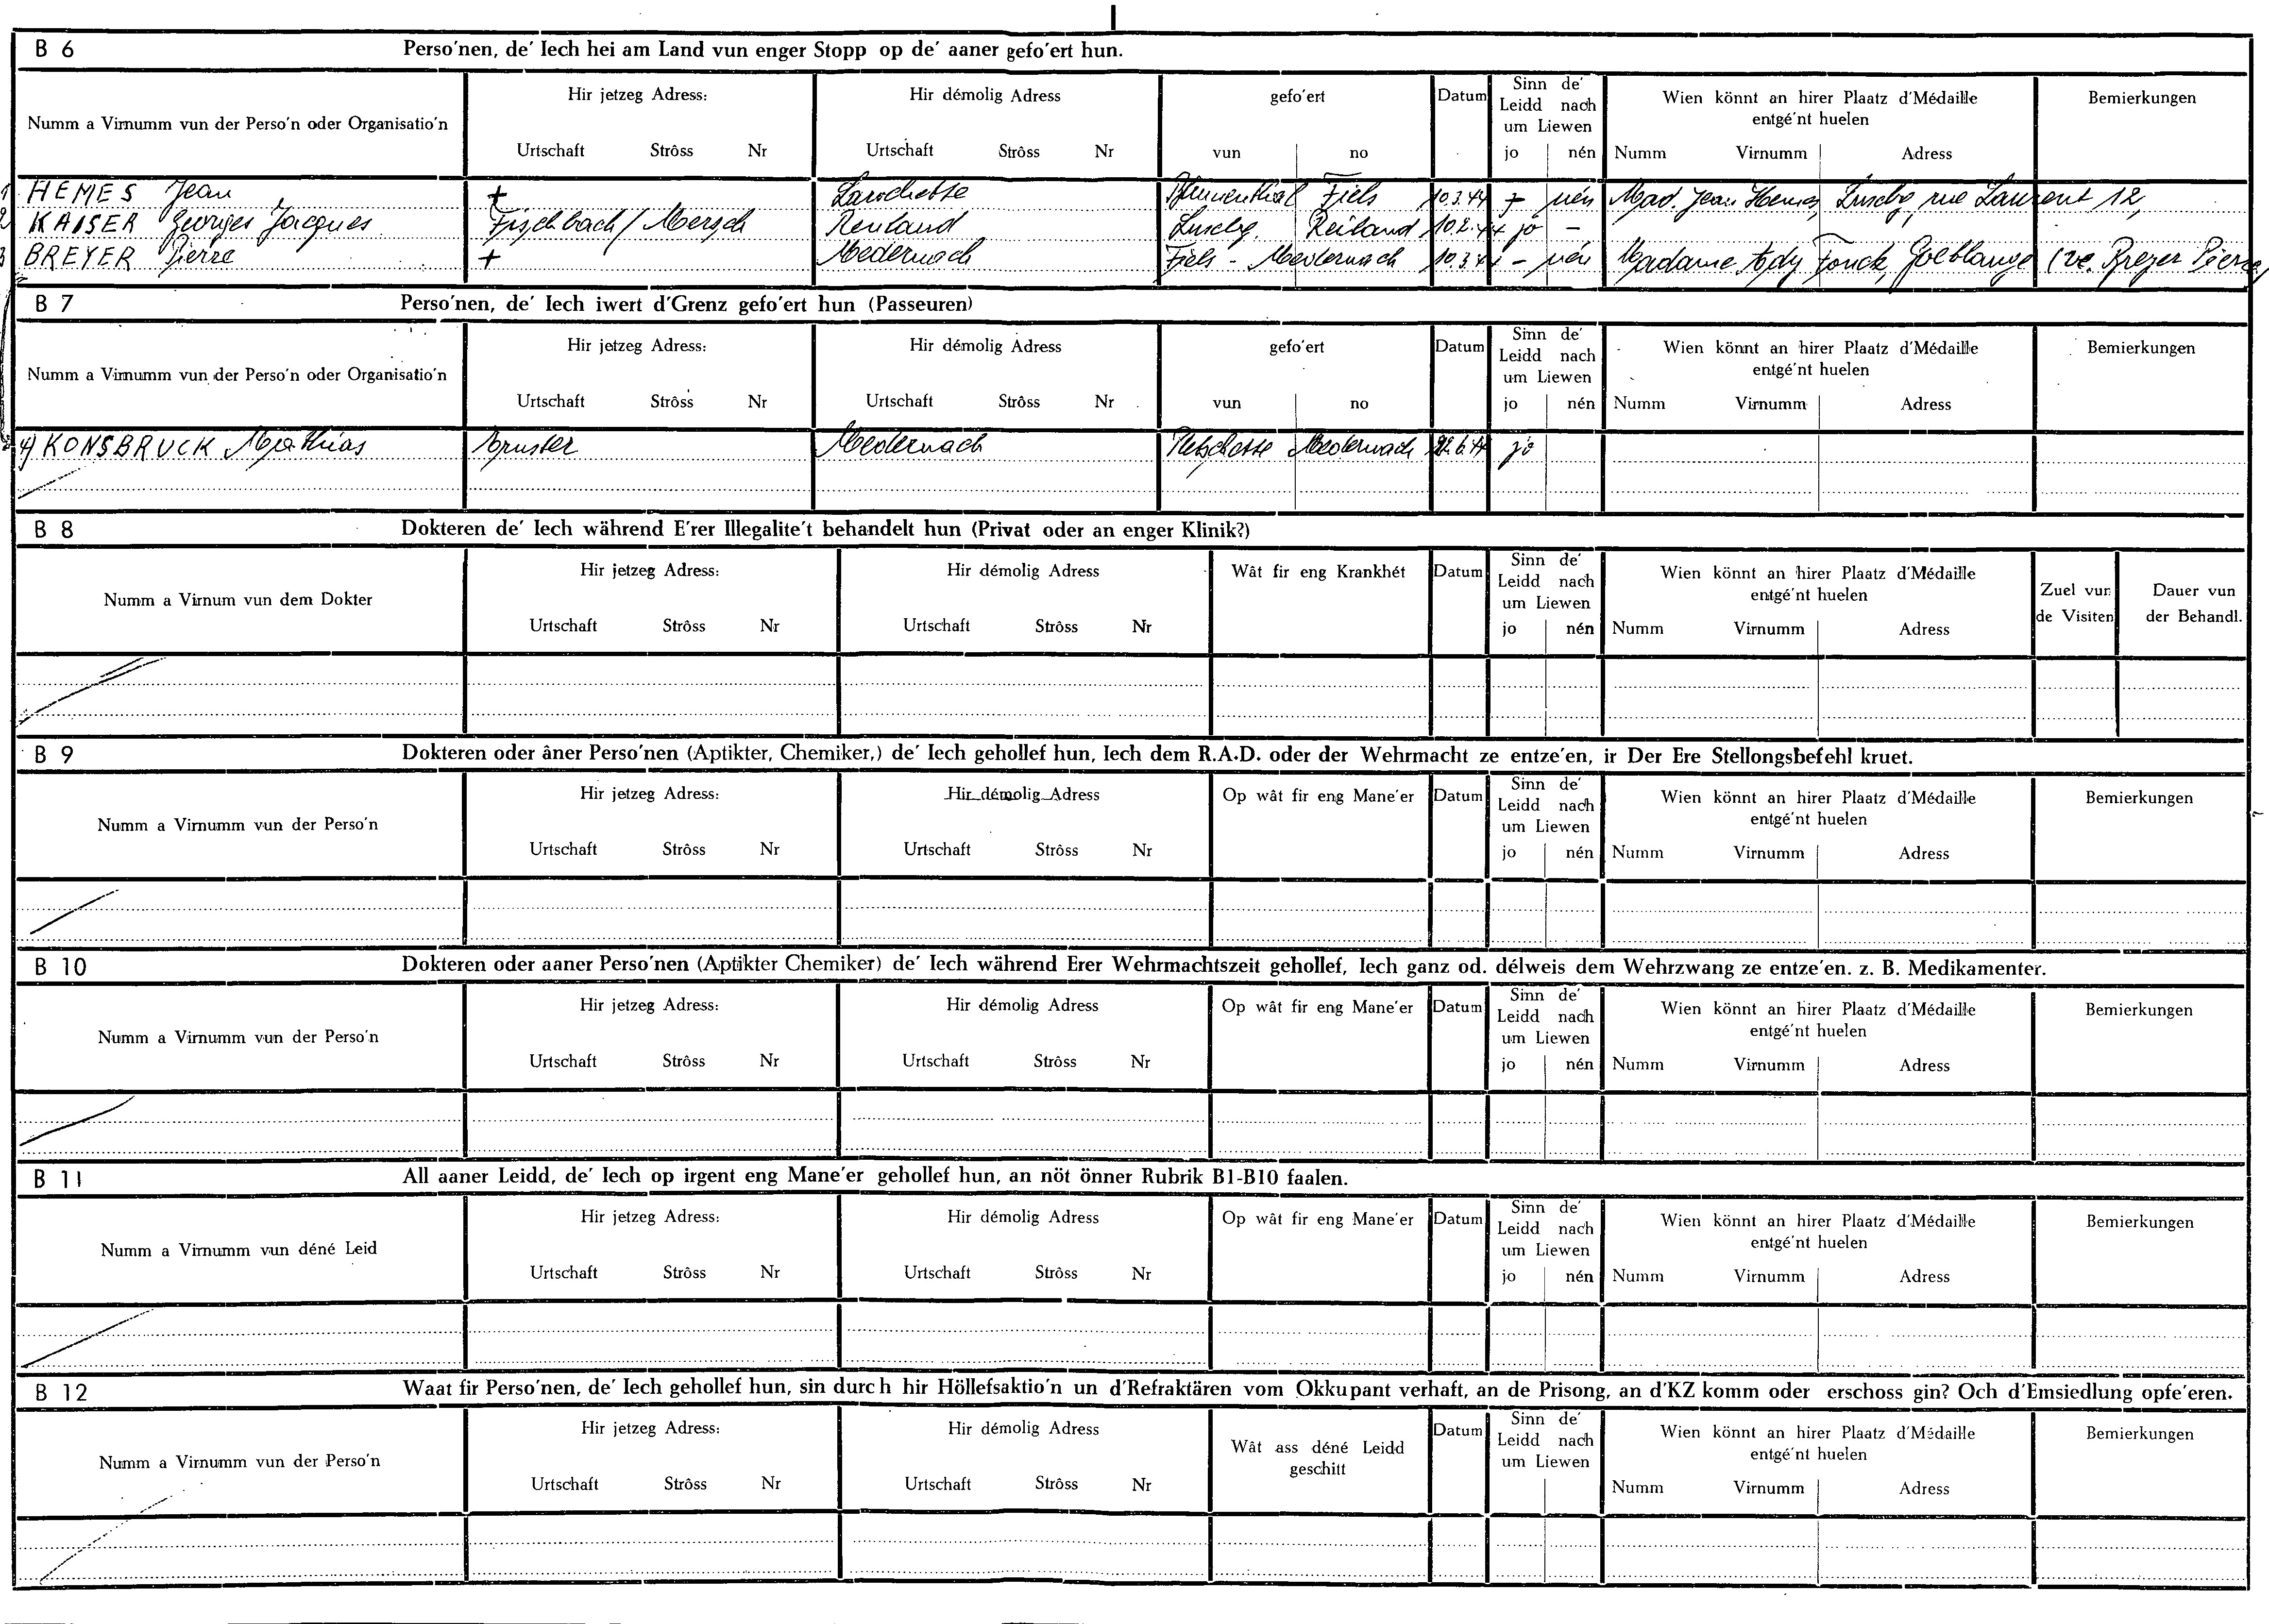 B 6 Perso'nen, de' Iech hei am Land vun enger Stopp op de' aaner gefo'ert hun.
Numm a Virnumm vun der Perso'n oder Organisatio'n
Hir jetzeg Adress:
Urtschaft Strôss Nr
Hir démolig Adress
Urtschaft Strôss Nr
gefo'ert
vun no
Datum
Sinn de'
Leidd nach
um Liewen
jo nén
Wien könnt an hirer Plaatz d'Médaille
entgé'nt huelen
Numm Virnumm Adress
Bemierkungen
1 HEMES Jean + Larochette Blumenthal Fiels 10.3.44 + nén Mad. Jean Hemes, Luxbg, rue Laurent 12,
2 KAISER Georges Jacques Fischbach / Mersch Reuland Luxbg. Reiland 10.2.44 jo -
3 BREYER Pierre + Medernach Fiels - Medernach 10.3.44 - nén Madame Ady Fonck, Goeblange (ve. Breyer Pierre)
B 7 Perso'nen, de' Iech iwert d'Grenz gefo'ert hun (Passeuren)
Numm a Virnumm vun der Perso'n oder Organisatio'n
Hir jetzeg Adress:
Urtschaft Strôss Nr
Hir démolig Adress
Urtschaft Strôss Nr
gefo'ert
vun no
Datum
Sinn de'
Leidd nach
um Liewen
jo nén
Wien könnt an hirer Plaatz d'Médaille
entgé'nt huelen
Numm Virnumm Adress
Bemierkungen
4) KONSBRUCK Mathias Ernster Medernach Medernach jo
B 8 Dokteren de' Iech während E'rer Illegalite't behandelt hun (Privat oder an enger Klinik?)
Numm a Virnum vun dem Dokter
Hir jetzeg Adress:
Urtschaft Strôss Nr
Hir démolig Adress
Urtschaft Strôss Nr
Wât fir eng Krankhét
Datum
Sinn de'
Leidd nach
um Liewen
jo nén
Wien könnt an hirer Plaatz d'Médaille
entgé'nt huelen
Numm Virnumm Adress
Zuel vun
de Visiten
Dauer vun
der Behandl.
B 9 Dokteren oder âner Perso'nen (Aptikter, Chemiker,) de' Iech gehollef hun, Iech dem R.A.D. oder der Wehrmacht ze entze'en, ir Der Ere Stellongsbefehl kruet.
Numm a Virnumm vun der Perso'n
Hir jetzeg Adress:
Urtschaft Strôss Nr
Hir démolig Adress
Urtschaft Strôss Nr
Op wât fir eng Mane'er
Datum
Sinn de'
Leidd nach
um Liewen
jo nén
Wien könnt an hirer Plaatz d'Médaille
entgé'nt huelen
Numm Virnumm Adress
Bemierkungen
B 10 Dokteren oder aaner Perso'nen (Aptikter Chemiker) de' Iech während Erer Wehrmachtszeit gehollef, Iech ganz od. délweis dem Wehrzwang ze entze'en. z. B. Medikamenter.
Numm a Virnumm vun der Perso'n
Hir jetzeg Adress:
Urtschaft Strôss Nr
Hir démolig Adress
Urtschaft Strôss Nr
Op wât fir eng Mane'er
Datum
Sinn de'
Leidd nach
um Liewen
jo nén
Wien könnt an hirer Plaatz d'Médaille
entgé'nt huelen
Numm Virnumm Adress
Bemierkungen
B 11 All aaner Leidd, de' Iech op irgent eng Mane'er gehollef hun, an nöt önner Rubrik B1-B10 faalen.
Numm a Virnumm vun déné Leid
Hir jetzeg Adress:
Urtschaft Strôss Nr
Hir démolig Adress
Urtschaft Strôss Nr
Op wât fir eng Mane'er
Datum
Sinn de'
Leidd nach
um Liewen
jo nén
Wien könnt an hirer Plaatz d'Médaille
entgé'nt huelen
Numm Virnumm Adress
Bemierkungen
B 12 Waat fir Perso'nen, de' Iech gehollef hun, sin durch hir Höllefsaktio'n un d'Refraktären vom Okkupant verhaft, an de Prisong, an d'KZ komm oder erschoss gin? Och d'Emsiedlung opfe'eren.
Numm a Virnumm vun der Perso'n
Hir jetzeg Adress:
Urtschaft Strôss Nr
Hir démolig Adress
Urtschaft Strôss Nr
Wât ass déné Leidd
geschitt
Datum
Sinn de'
Leidd nach
um Liewen
Wien könnt an hirer Plaatz d'Médaille
entgé'nt huelen
Numm Virnumm Adress
Bemierkungen